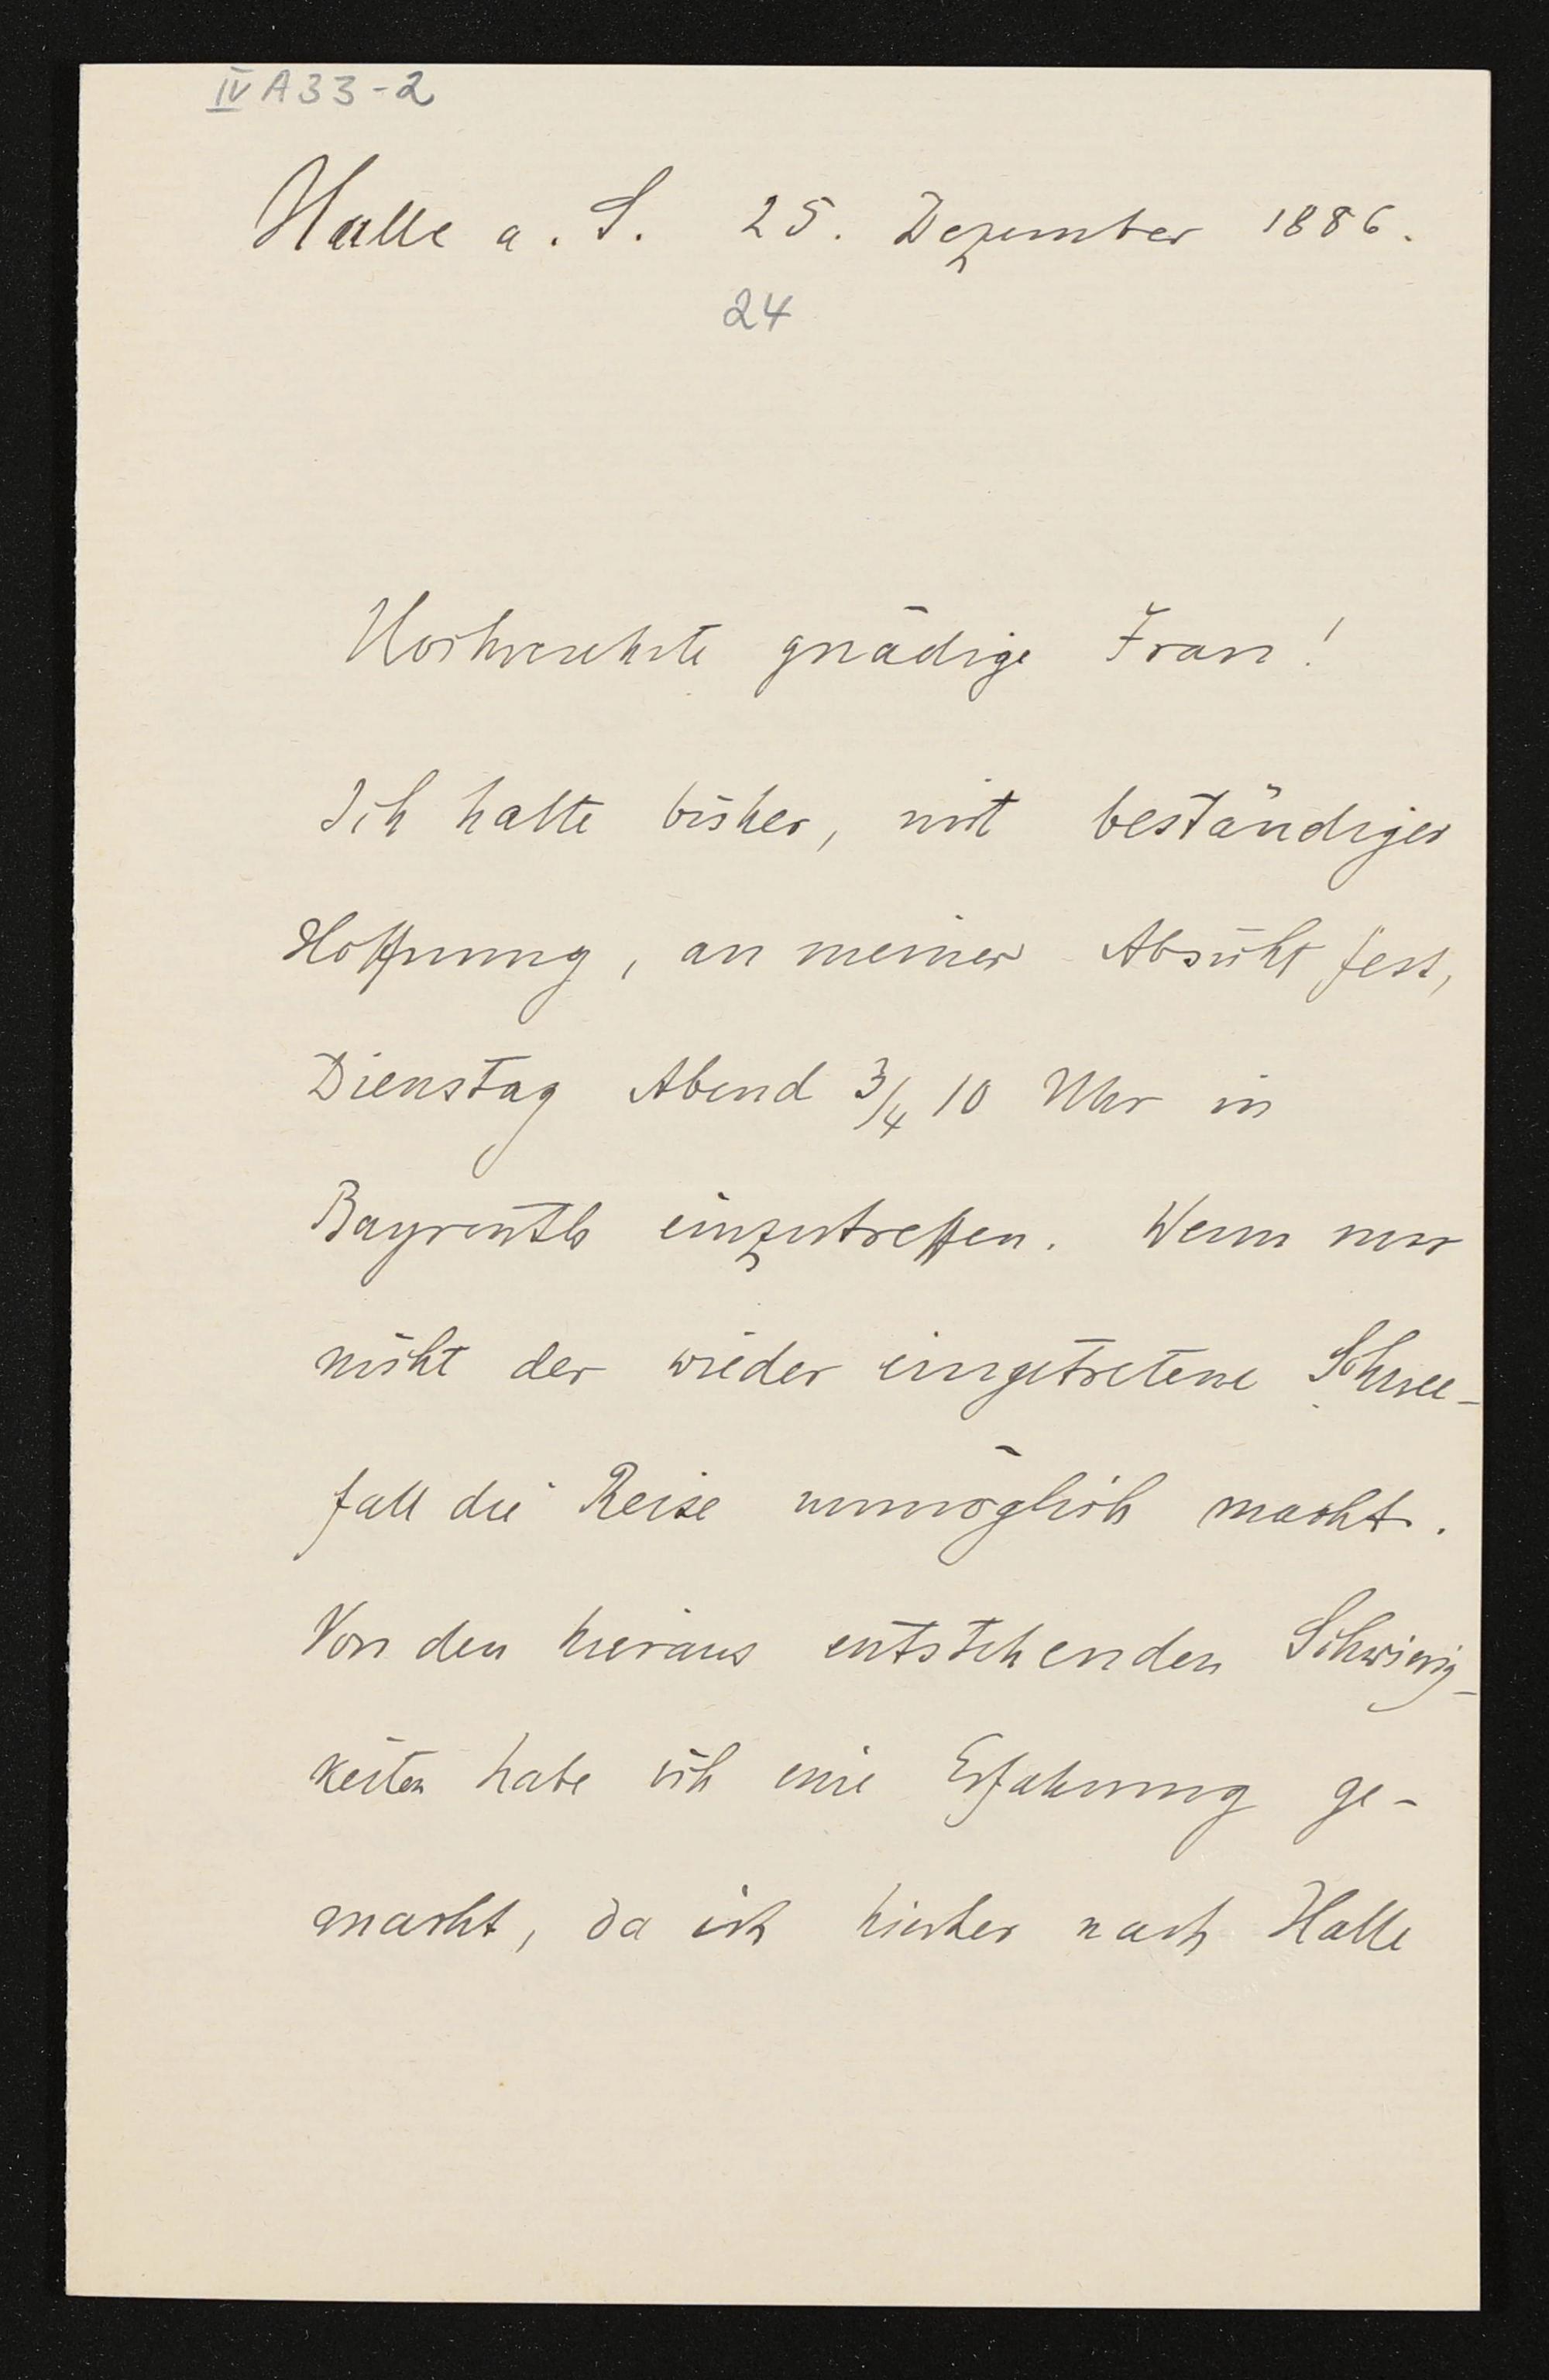 IV A33-2
Halle a. S. 25. Dezember 1886.
24
Hochverehrte gnädige Frau!
Ich halte bisher, mit beständiger
Hoffnung, an meiner Absicht fest,
Dienstag Abend 3/4 10 Uhr in
Bayreuth einzutreffen. Wenn nur
nicht der wieder eingetretene Schnee-
fall die Reise unmöglich macht.
Von den hieraus entstehenden Schwierig-
keiten habe ich eine Erfahrung ge-
macht, da ich hierher nach Halle